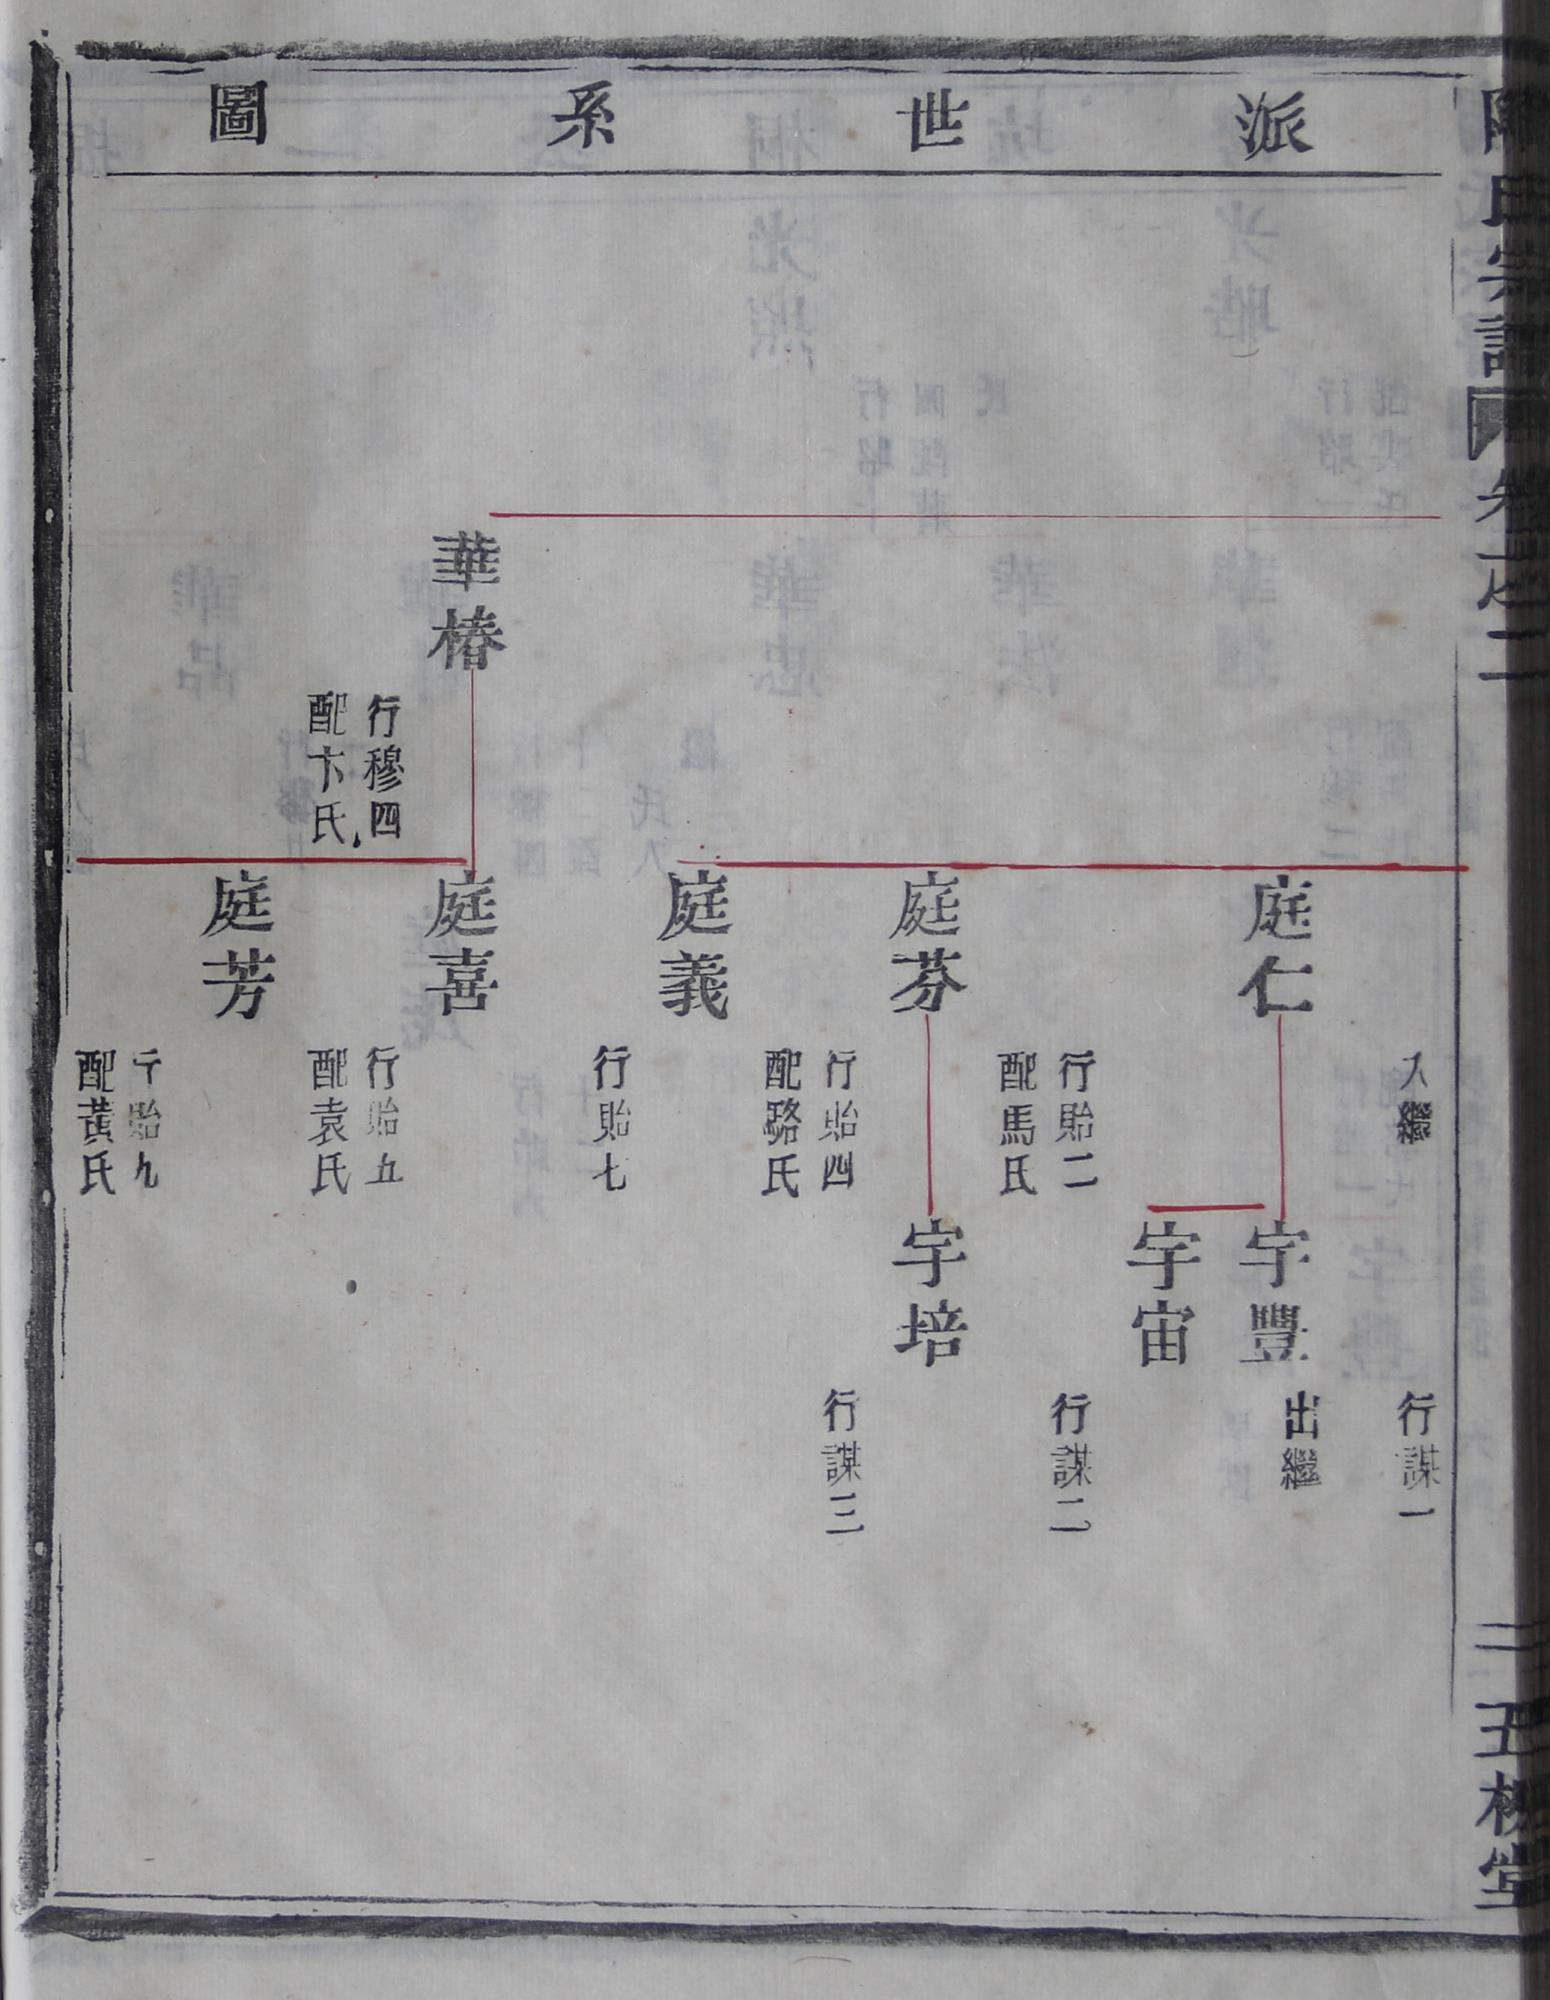 派世系圖
氏宗譜
卷
五柳堂
華椿
行穆四
配卞氏
庭仁
庭芬
庭義
庭喜
庭芳
入繼
行貽二
配馬氏
行貽四
配駱氏
行貽七
行貽五
配袁氏
行貽九
配黃氏
宇豐
宇宙
宇培
行謀一
出繼
行謀二
行謀三